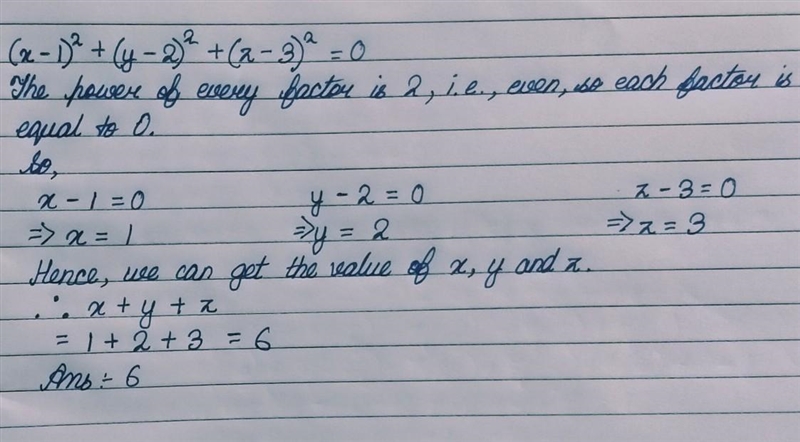 (x-1)² + (y-2)² + (z-3)² = 0
The power of every factor is 2, i.e., even, so each factor is
equal to 0.
So,
x - 1 = 0 y - 2 = 0 z - 3 = 0
⇒ x = 1 ⇒ y = 2 ⇒ z = 3
Hence, we can get the value of x, y and z.
∴ x + y + z
= 1 + 2 + 3 = 6
Ans :- 6